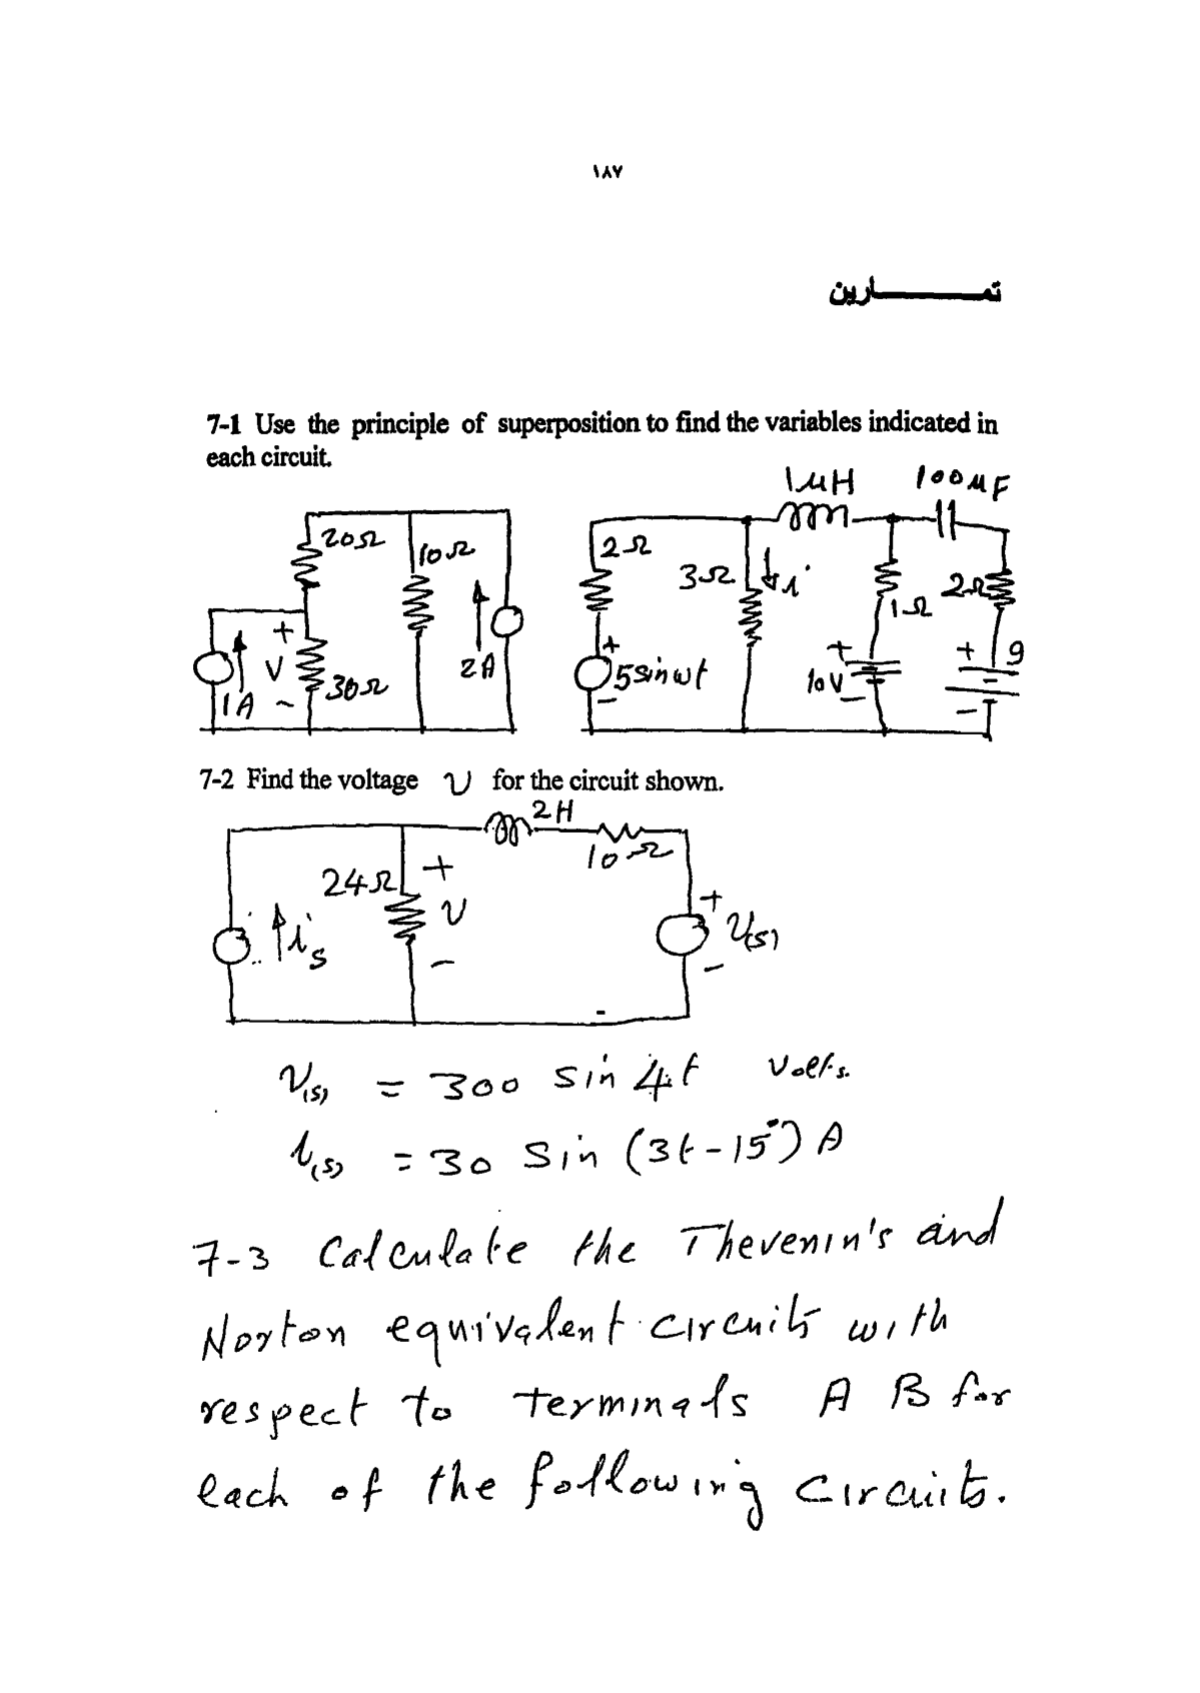 ١٨٧
تمـــــــارين
7-1 Use the principle of superposition to find the variables indicated in
each circuit.
1μH 100μF
20Ω 10Ω 2Ω 3Ω i 1Ω 2Ω
+ V - 30Ω 1A 2A + 5sinωt - + 10V - + 9 -
7-2 Find the voltage v for the circuit shown.
2H
10Ω
24Ω + v -
is + v(s) -
v(s) = 300 sin 4t volts.
i(s) = 30 sin (3t-15°) A
7-3 Calculate the Thevenin's and
Norton equivalent circuits with
respect to terminals A B for
each of the following circuits.